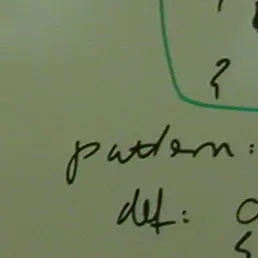 }
pattern:
def: